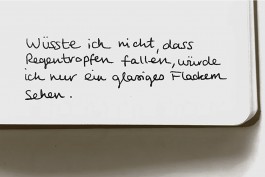 Wüsste ich nicht, dass
Regentropfen fallen, würde
ich nur ein glasiges Flackern
sehen.